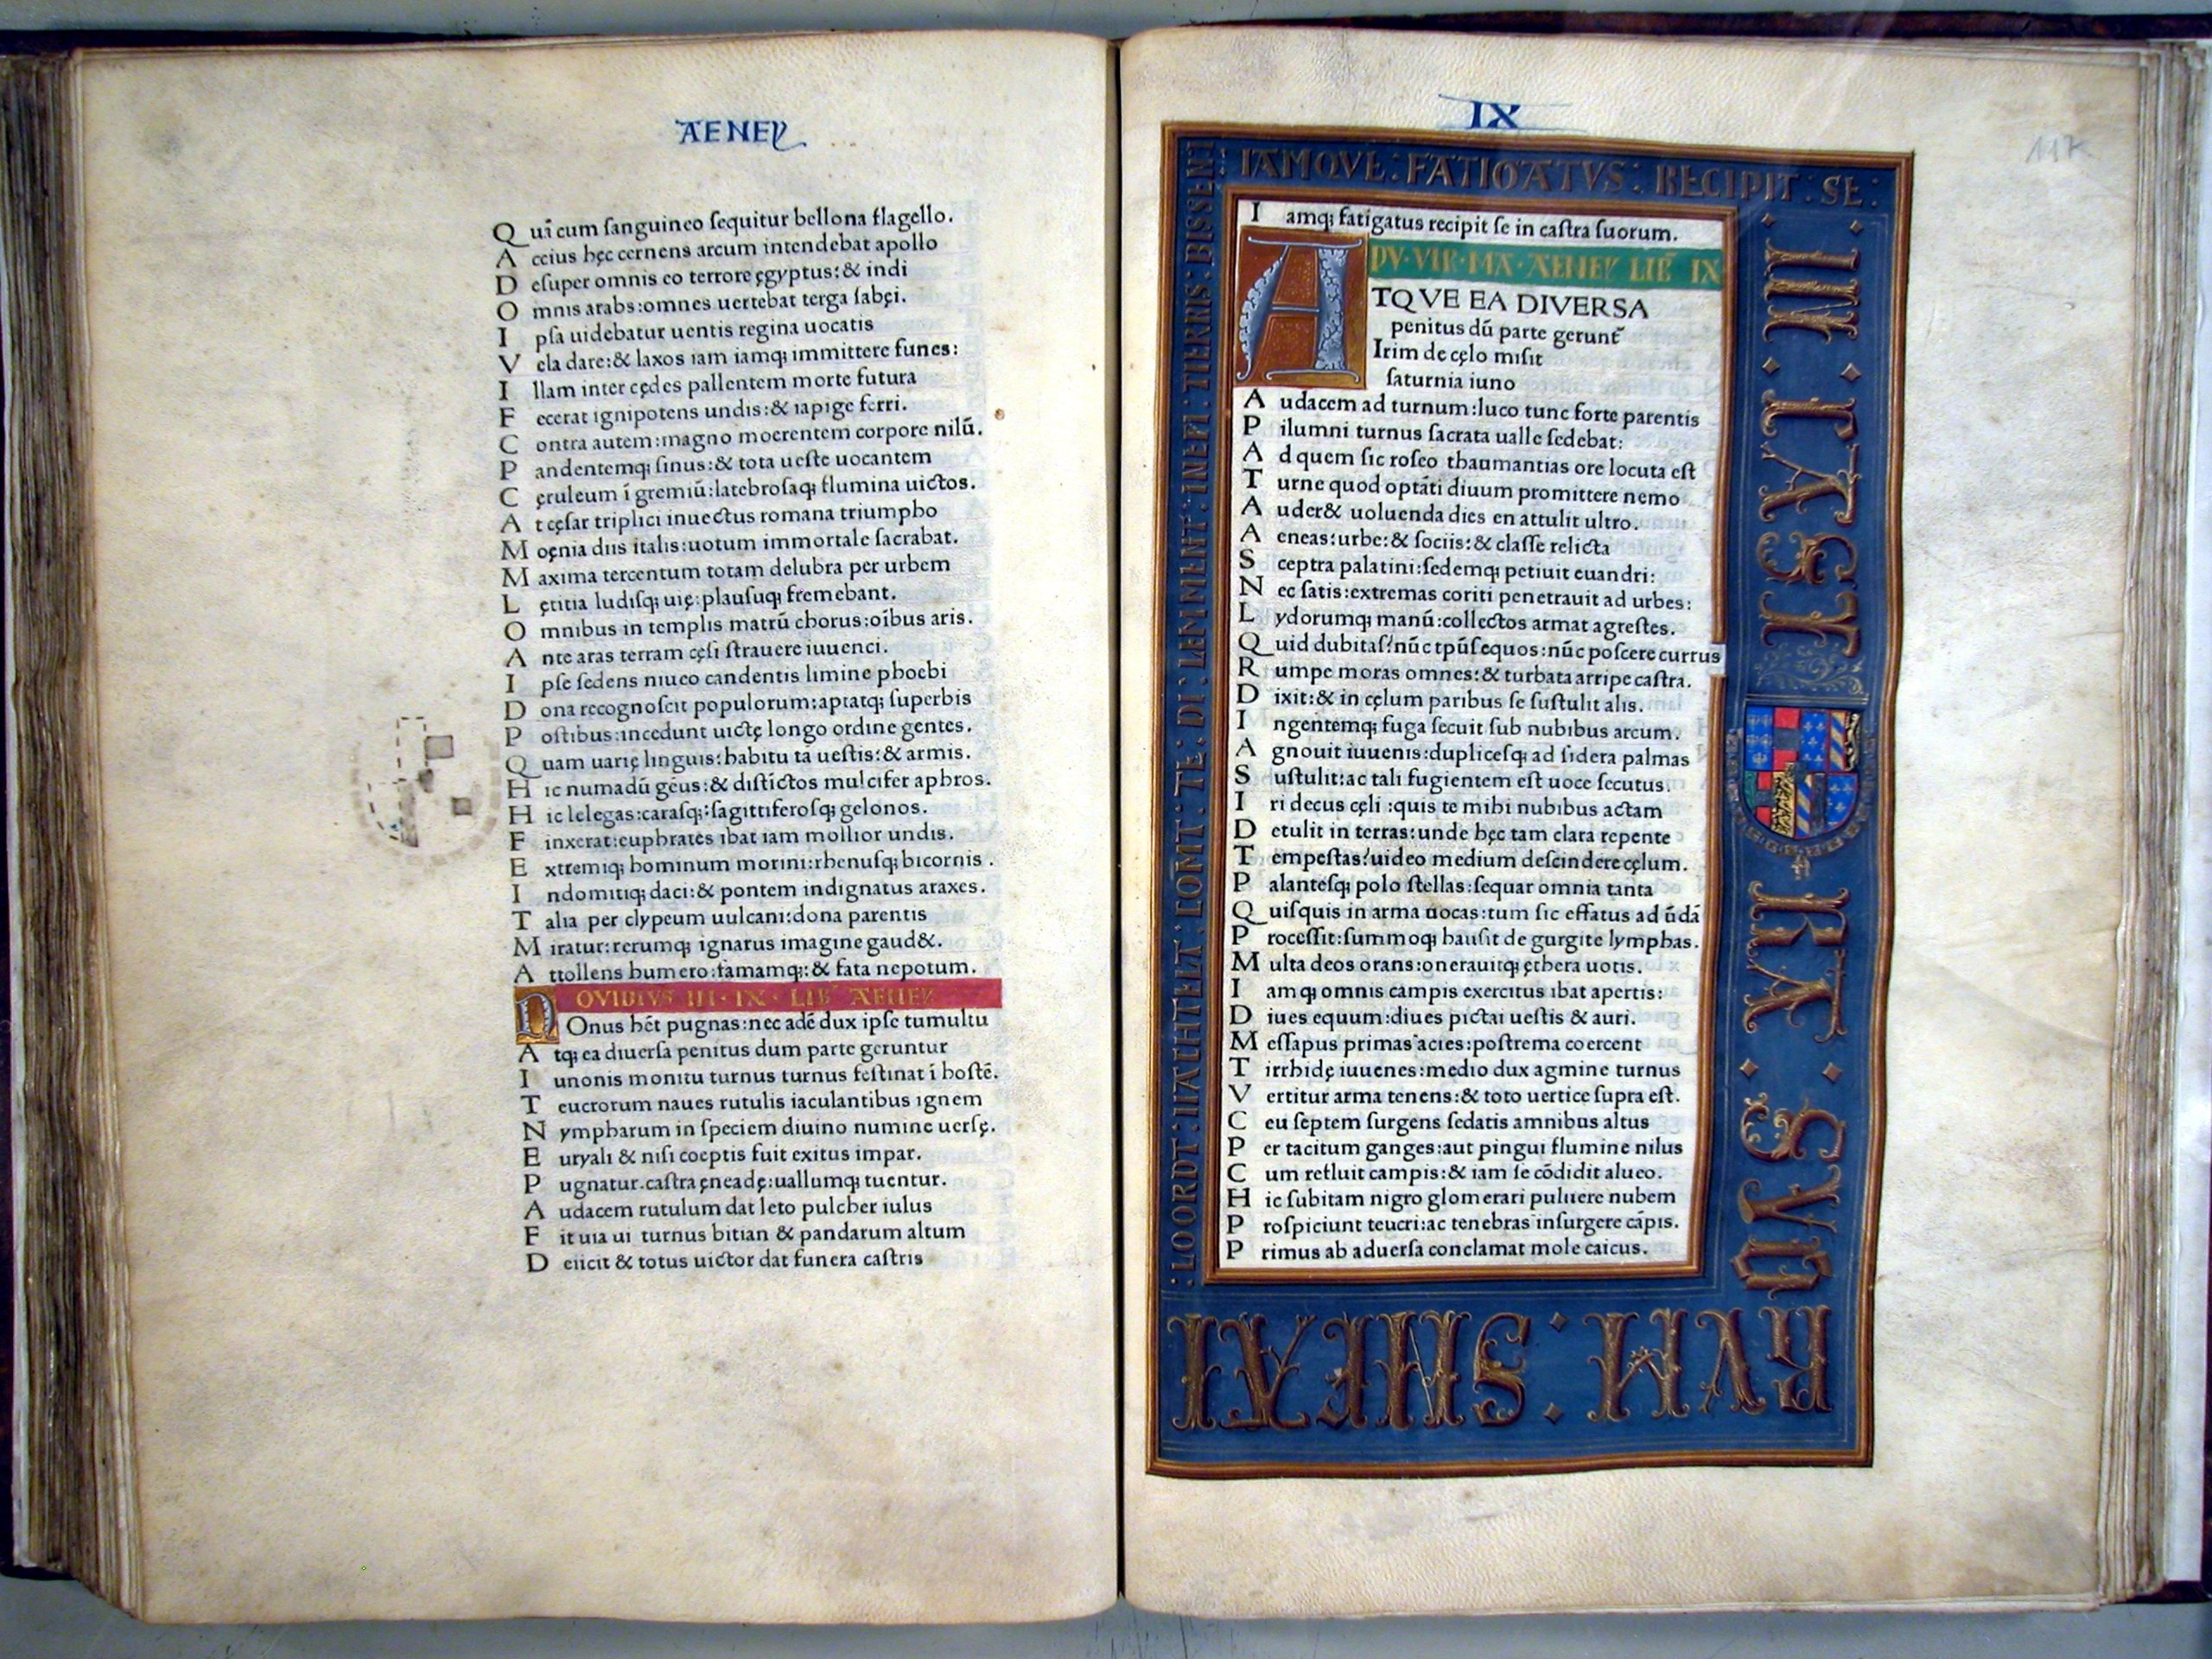 AENEY
Qui cum ſanguineo ſequitur bellona flagello.
Accius hęc cernens arcum intendebat apollo
Deſuper omnis eo terrore ęgyptus:& indi
Omnis arabs:omnes uertebat terga ſabęi.
Ipſa uidebatur uentis regina uocatis
Vela dare:& laxos iam iamq; immittere funes:
Illam inter cędes pallentem morte futura
Fecerat ignipotens undis:& iapige ferri.
Contra autem:magno moerentem corpore nilū.
Pandentemq; ſinus:& tota ueſte uocantem
Cęruleum ī gremiū:latebroſaq; flumina uictos.
At cęſar triplici inuectus romana triumpho
Moęnia diis italis:uotum immortale ſacrabat.
Maxima tercentum totam delubra per urbem
Lętitia ludiſq; uię:plauſuq; fremebant.
Omnibus in templis matrū chorus:oībus aris.
Ante aras terram cęſi ſtrauere iuuenci.
Ipſe ſedens niueo candentis limine phoebi
Dona recognoſcit populorum:aptatq; ſuperbis
Poſtibus:incedunt uictę longo ordine gentes.
Quam uarię linguis:habitu tā ueſtis:& armis.
Hic numadū gēus:& diſtictos mulcifer aphros.
Hic lelegas:caraſq;:ſagittiferoſq; gelonos.
Finxerat:euphrates ibat iam mollior undis.
Extremiq; hominum morini:rhenuſq; bicornis.
Indomitiq; daci:& pontem indignatus araxes.
Talia per clypeum uulcani:dona parentis
Miratur:rerumq; ignarus imagine gaud&.
Attollens humero:famamq;:& fata nepotum.
OVIDIVS III·IX·LIB AENEY
NOnus hēt pugnas:nec adē dux ipſe tumultu
Atq; ea diuerſa penitus dum parte geruntur
Iunonis monitu turnus turnus feſtinat ī hoſtē.
Teucrorum naues rutulis iaculantibus ignem
Nympharum in ſpeciem diuino numine uerſę.
Euryali & niſi coeptis fuit exitus impar.
Pugnatur.caſtra ęneadę:uallumq; tuentur.
Audacem rutulum dat leto pulcher iulus
Fit uia ui turnus bitian & pandarum altum
Deiicit & totus uictor dat funera caſtris
IX
117
IAMQVE: FATIGATVS: RECIPIT: SE:
IN · CAST
RA · SVO
RVM · SMEAI
:LOORDT:
COMT: TE: DI:
INEFI: TIERNIS: BISSENI
Iamq; fatigatus recipit ſe in caſtra ſuorum.
PV·VIR·MA·AENEY LIB IX
ATQVE EA DIVERSA
penitus dū parte gerunt̄
Irim de cęlo miſit
ſaturnia iuno
Audacem ad turnum:luco tunc forte parentis
Pilumni turnus ſacrata ualle ſedebat:
Ad quem ſic roſeo thaumantias ore locuta eſt
Turne quod optāti diuum promittere nemo
Auder& uoluenda dies en attulit ultro.
Aeneas:urbe:& ſociis:& claſſe relicta
Sceptra palatini:ſedemq; petiuit euandri:
Nec ſatis:extremas coriti penetrauit ad urbes:
Lydorumq; manū:collectos armat agreſtes.
Quid dubitaſ?nūc tpūſ equos:nūc poſcere currus
Rumpe moras omnes:& turbata arripe caſtra.
Dixit:& in cęlum paribus ſe ſuſtulit alis.
Ingentemq; fuga ſecuit ſub nubibus arcum.
Agnouit iuuenis:dupliceſq; ad ſidera palmas
Suſtulit:ac tali fugientem eſt uoce ſecutus.
Iri decus cęli :quis te mihi nubibus actam
Detulit in terras:unde hęc tam clara repente
Tempeſtas?uideo medium deſcindere cęlum.
Palanteſq; polo ſtellas:ſequar omnia tanta
Quiſquis in arma uocas:tum ſic effatus ad ūdā
Proceſſit:ſummoq; hauſit de gurgite lymphas.
Multa deos orans:onerauitq; ęthera uotis.
Iamq; omnis campis exercitus ibat apertis:
Diues equum:diues pictai ueſtis & auri.
Meſſapus primas acies:poſtrema coercent
Tirrhidę iuuenes:medio dux agmine turnus
Vertitur arma tenens:& toto uertice ſupra eſt.
Ceu ſeptem ſurgens ſedatis amnibus altus
Per tacitum ganges:aut pingui flumine nilus
Cum refluit campis:& iam ſe cōdidit alueo.
Hic ſubitam nigro glomerari puluere nubem
Proſpiciunt teucri:ac tenebras inſurgere cāpis.
Primus ab aduerſa conclamat mole caicus.